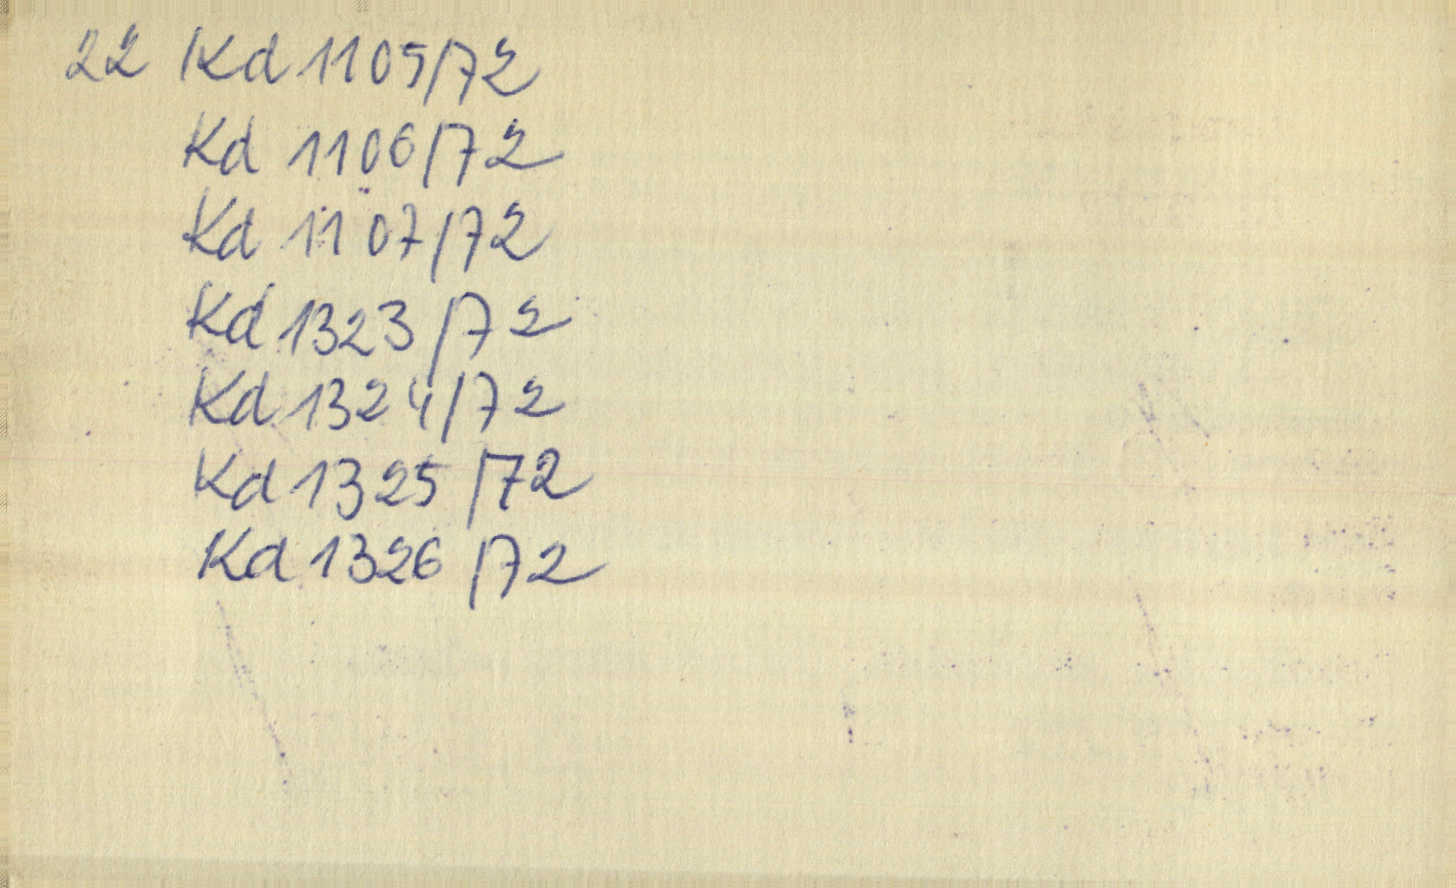 22 Kd 1105/72
Kd 1106/72
Kd 1107/72
Kd 1323/72
Kd 1324/72
Kd 1325/72
Kd 1326/72